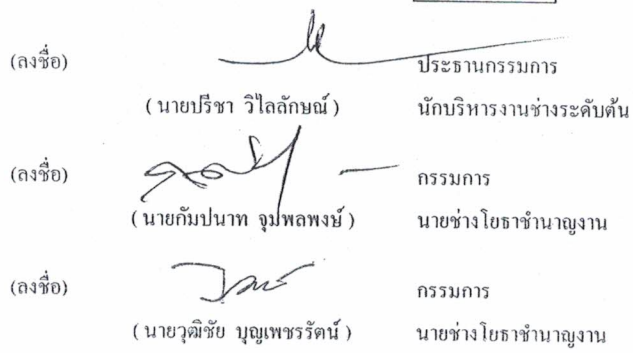 (ลงชื่อ) ประธานกรรมการ
( นายปรีชา วิไลลักษณ์ ) นักบริหารงานช่างระดับต้น
(ลงชื่อ) กรรมการ
( นายกัมปนาท จุมพลพงษ์ ) นายช่างโยธาชำนาญงาน
(ลงชื่อ) กรรมการ
( นายวุฒิชัย บุญเพชรรัตน์ ) นายช่างโยธาชำนาญงาน